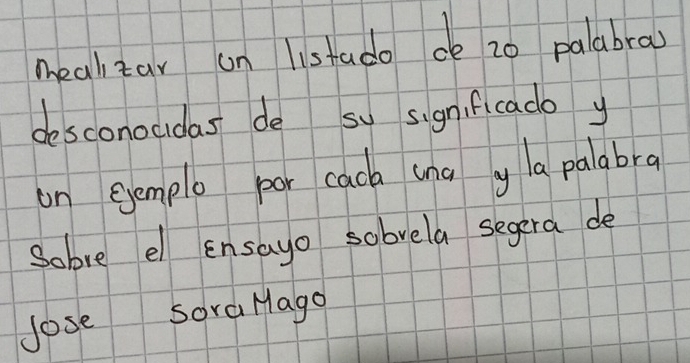 Realizar un listado de 20 palabras
desconocidas de su significado y
un Ejemplo por cada una y la palabra
Sobre el Ensayo sobrela segera de
Jose soraMago